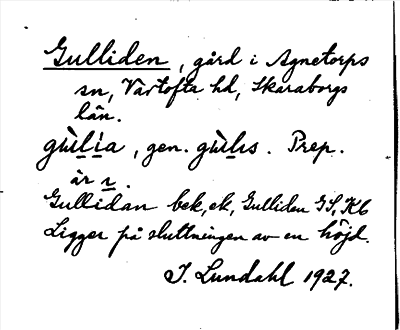 Gulliden, gård i Agnetorps
sn, Vartofta hd, Skaraborgs
län.
gùl̲ìa, gen. gùl̲ıs. Prep.
är ı.
Gullidan bek, ek, Gulliden GS, Kb
Ligger på sluttningen av en höjd.
I. Lundahl 1927.